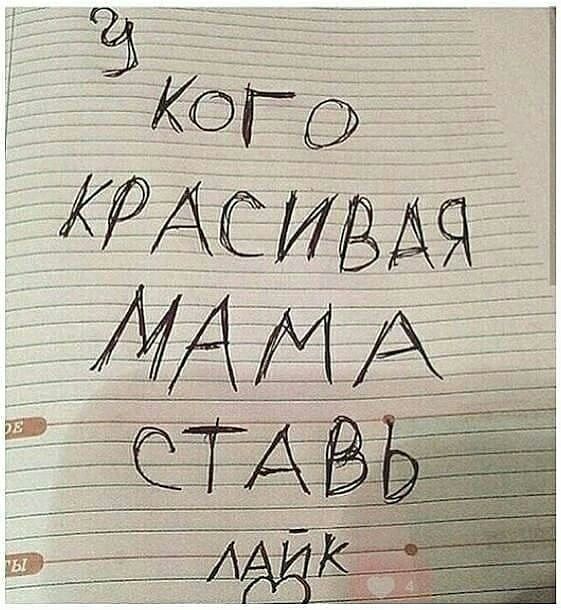 У
КОГО
КРАСИВАЯ
МАМА
СТАВЬ
ЛАЙК
ОЕ
ТЫ
4